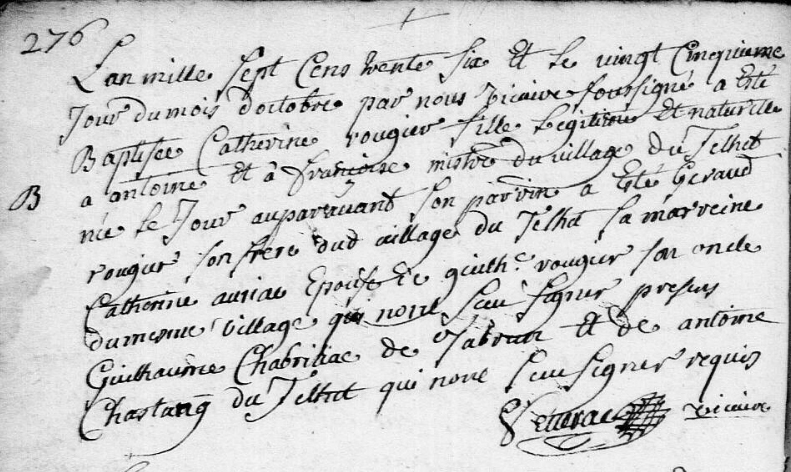 276
L'an mille sept cens trente six et le vingt cinquieme
Jour du mois d'octobre par nous vicaire soussigné a esté
Baptisée Catherine rougier fille legitime et naturelle
B
a antoine et à françoise mistre du village du Telhit
née le Jour auparavant son parrin a esté Geraud
rougier son frere dud village du Telhit sa marreine
Catherine auriac Epouse de guilhe rougier son oncle
du mesme village qui nont sceu signer presens
Guilhaume Chabriliac de et de antoine
Chastang du Telhit qui nont sceu signer requis
vicaire